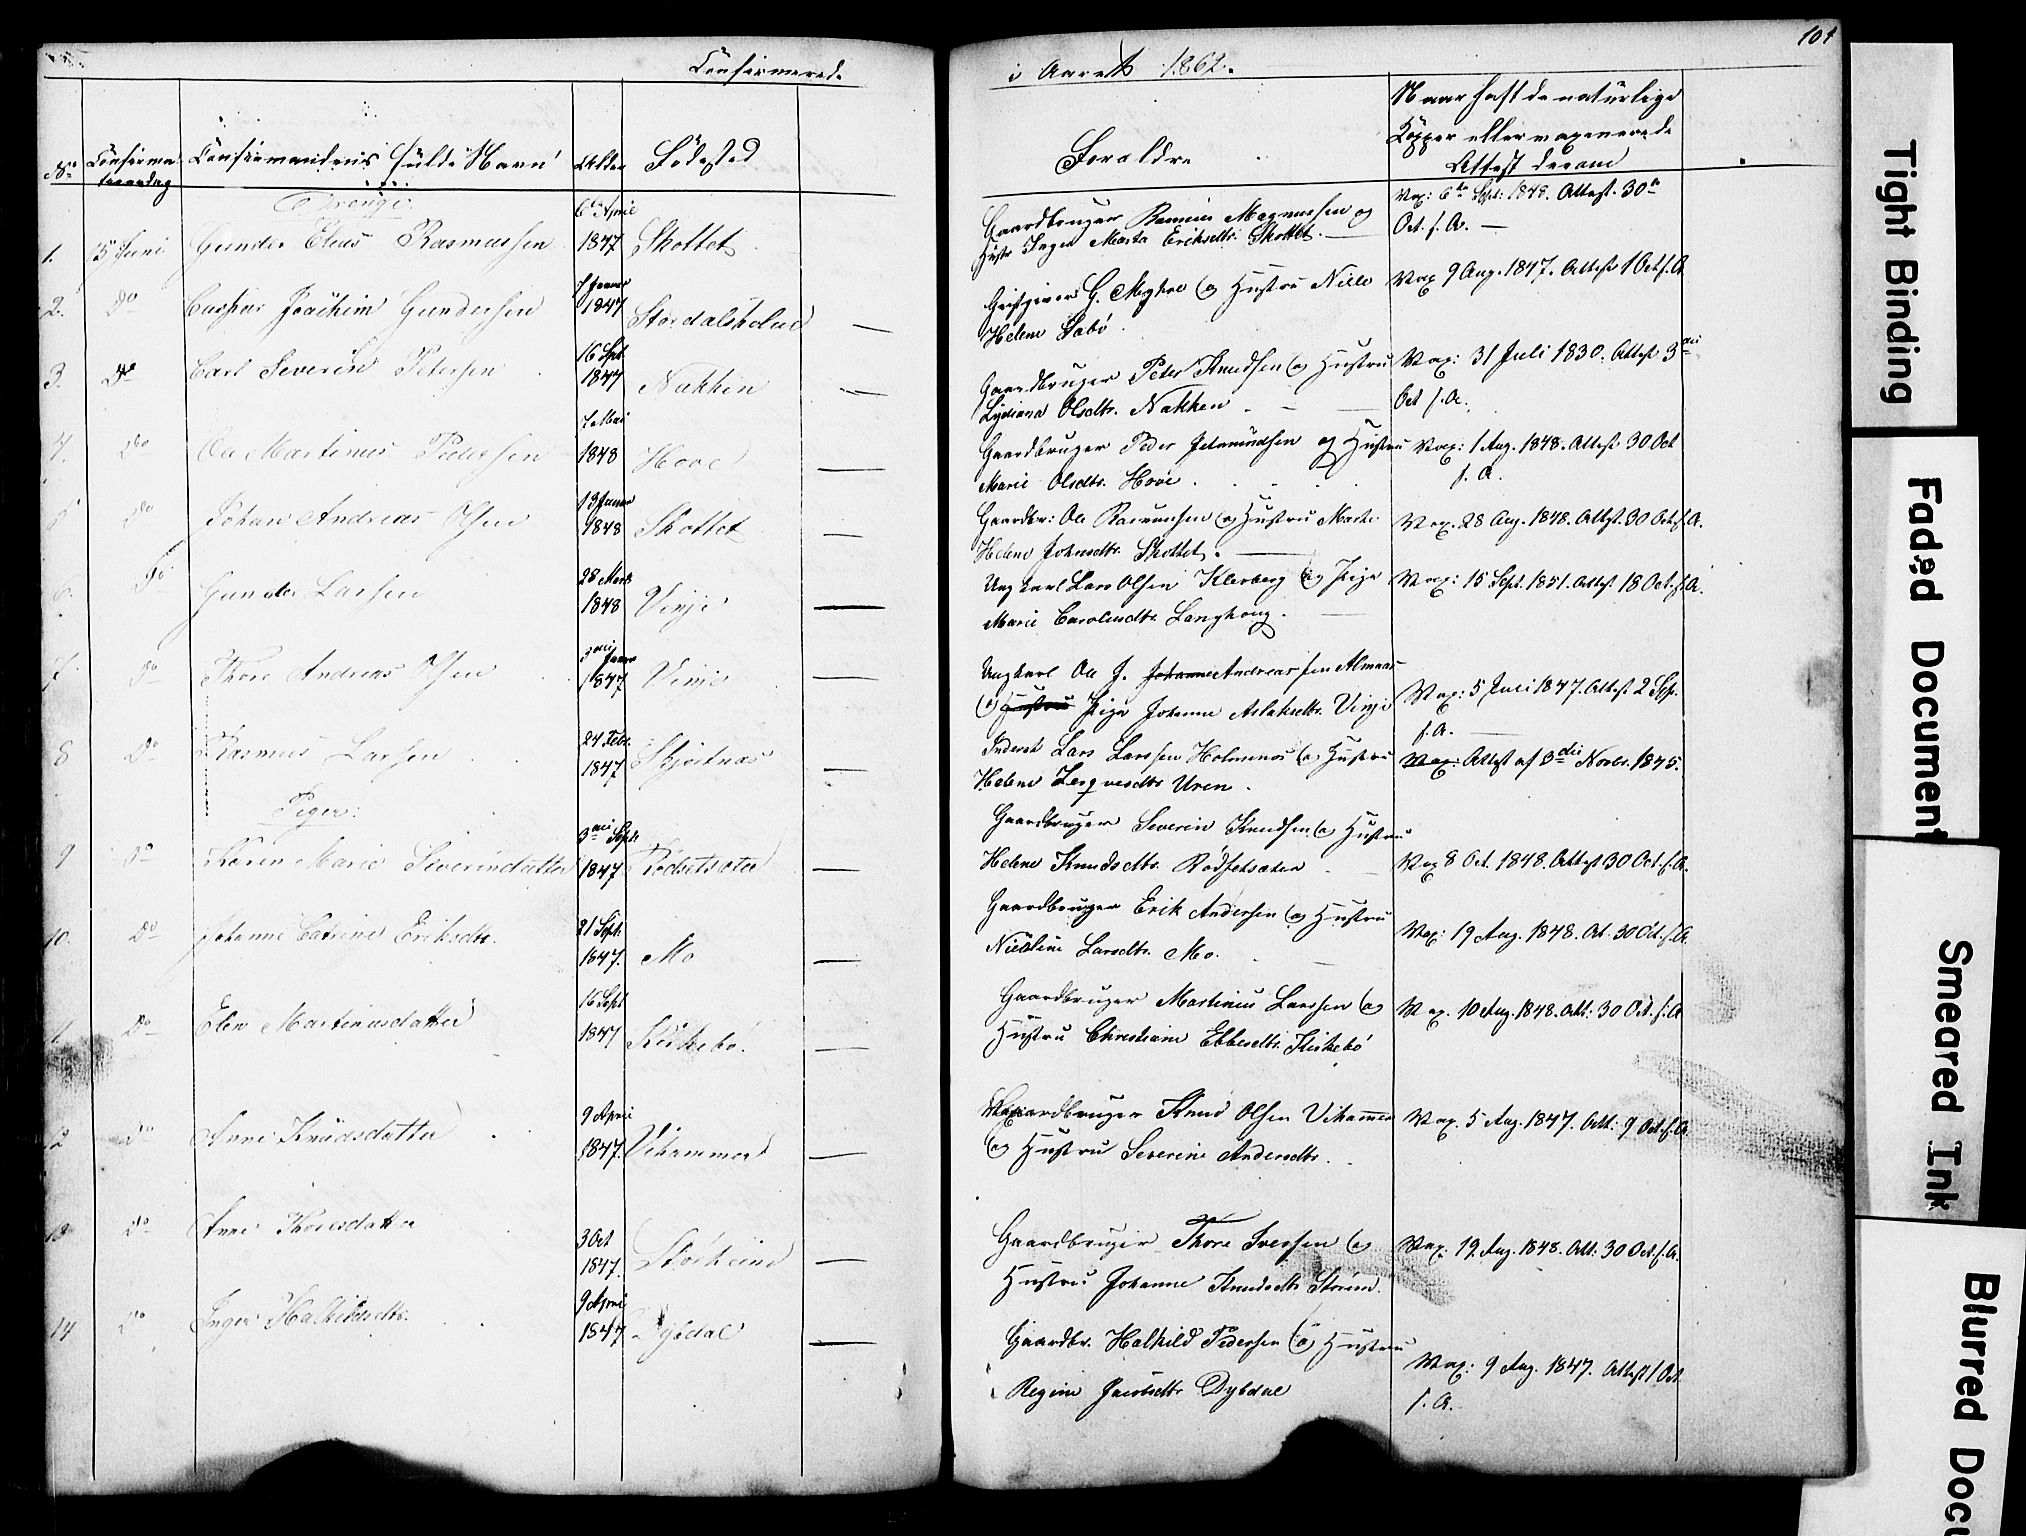 Confirmerede
i Aaret 1862.
104
No
Confirmationsdag
Confirmandens fulde Navn
Alder
Fødested
Forældre
Naar haft de naturlige
Kopper eller vaxinerede
Attest derom
Drenge
1. 15 Juni Gunder Elias Rasmussen 6te April 1847 Skottet
Gaardbruger Rasmus Magnussen og
Hustr Inger Marta Eriksdtr. Skottet.
Vax: 6te Sept: 1848. Attest. 30te
Oct. s. A.
2. Do Caspar Joachim Gundersen 7 Januar 1847 Stordalsholm
Gjestgiver G. Myhre og Hustru Nille
Helene Sabø
Vax 9 Aug. 1847. Attest 1 Oct. s. A
3. Do Carl Severin Petersen 16 Spt. 1847 Nakken
Gaardbruger Peter Knudsen og Hustru
Lydiana Olsdtr. Nakken.
Vax: 31 Juli 1830. Attest 3die
Oct s. A.
4. Do Ole Martinus Pedersen 7 Mai 1848 Hove
Gaardbruger Peder og Hustru
Marie Olsdtr. Hove.
Vax: 1 Aug. 1848. Attest 30 Oct
s. A.
5 Do Johan Andreas Olsen 13 Januar 1848 Skottet
Gaardbr: Ole Rasmussen og Hustru Marte
Helene Johnsdtr. Skottet.
Vax. 28 Aug. 1848. Attest. 30 Oct. s. A.
6. Do Gunder Larsen 28 Marts 1848 Vinje
Ungkarl Lars Olsen Kleiberg og Pige
Marie Carolusdtr. Langhoug.
Vax: 15 Sept. 1851. Attest 18 Oct. s. A.
7. Do Thore Andreas Olsen 3die Januar 1847 Vinje
Ungkarl Ole J. Johanne Andreassen Almaas
og Hustru Pige Johanne Aslaksdtr. Vinje
Vax: 5 Juli 1847. Attest 2 Sept.
s. A.
8 Do Rasmus Larsen 24 Febr. 1847 Skjortnæs
Inderst Lars Larssen Holmenæs og Hustru
Helene Uren.
Vax: Attest af 3die Novbr. 1845.
Piger:
9 Do Karen Marie Severinsdatter 3die Septr 1847 Rødsetsæter
Gaardbruger Severin Knudsen og Hustru
Helene Knudsdtr. Rødsetsæter
Vax 8 Oct. 1848. Attest 30 Oct. s. A.
10. Do Johanne Catrine Eriksdtr. 21 Sept. 1847. Mo
Gaardbruger Erik Andersen og Hustru
Nicoline Larsdtr. Mo.
Vax: 19 Aug. 1848. At. 30 Oct. s. A.
11 Do Elen Martinusdatter 16 Sept 1847 Kirkebø.
Gaardbruger Martinus Larssen og
Hustru Christiane Ebbesdtr. Kirkebø
Vax. 10 Aug. 1848. Att: 30 Oct. s. A
12 Do Anne Knudsdatter 9 April 1847. Vihammer
Gaardbruger Knud Olsen Vihammer
og Hustru Severine Andersdtr.
Vax. 5 Aug. 1847. Att: 9 Oct. s. A.
13 Do Anne Thoresdatter 3 Oct 1847. Størheim
Gaardbruger Thore Iversen og
Hustru Johanne Knudsdtr Størem.
Vax: 19 Aug. 1848. Att. 30 Oct. s. A.
14 Do Inger Halkildsdtr. 9 April 1847 Dybdal
Gaardbr. Halkild Pedersen og Hustru
Regine Jacobsdtr Dybdal
Vax: 9 Aug. 1847. Attest 1 Oct
s. A.
Tight Binding
Faded Document
Smeared Ink
Blurred Docu